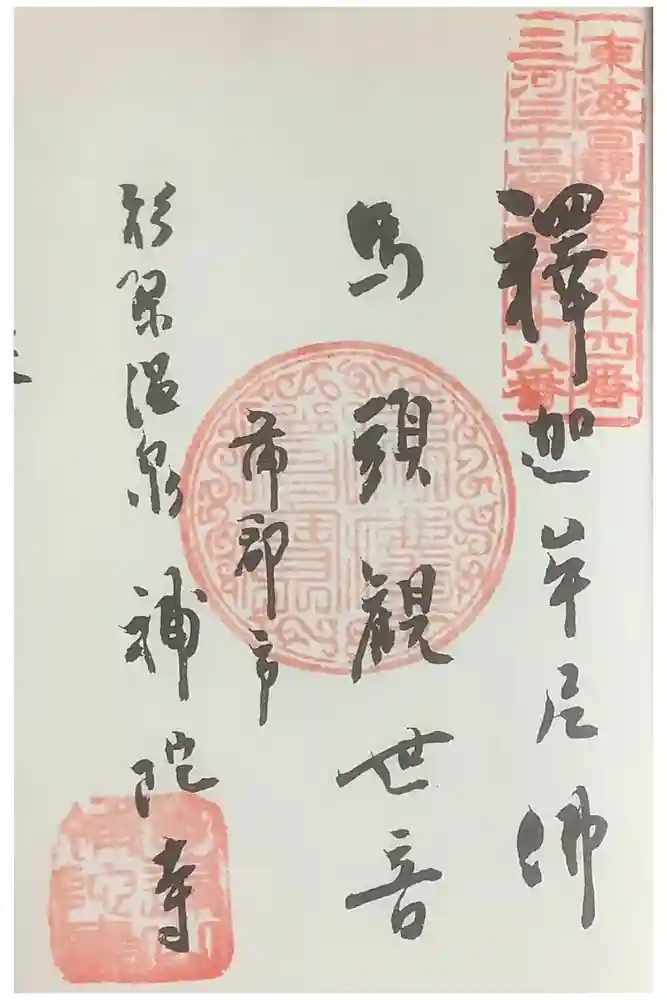 東海百観音第八十四番
三河三十三観音第十八番
釋迦牟尼佛
馬頭観世音
蒲郡市
形原温泉 補陀寺